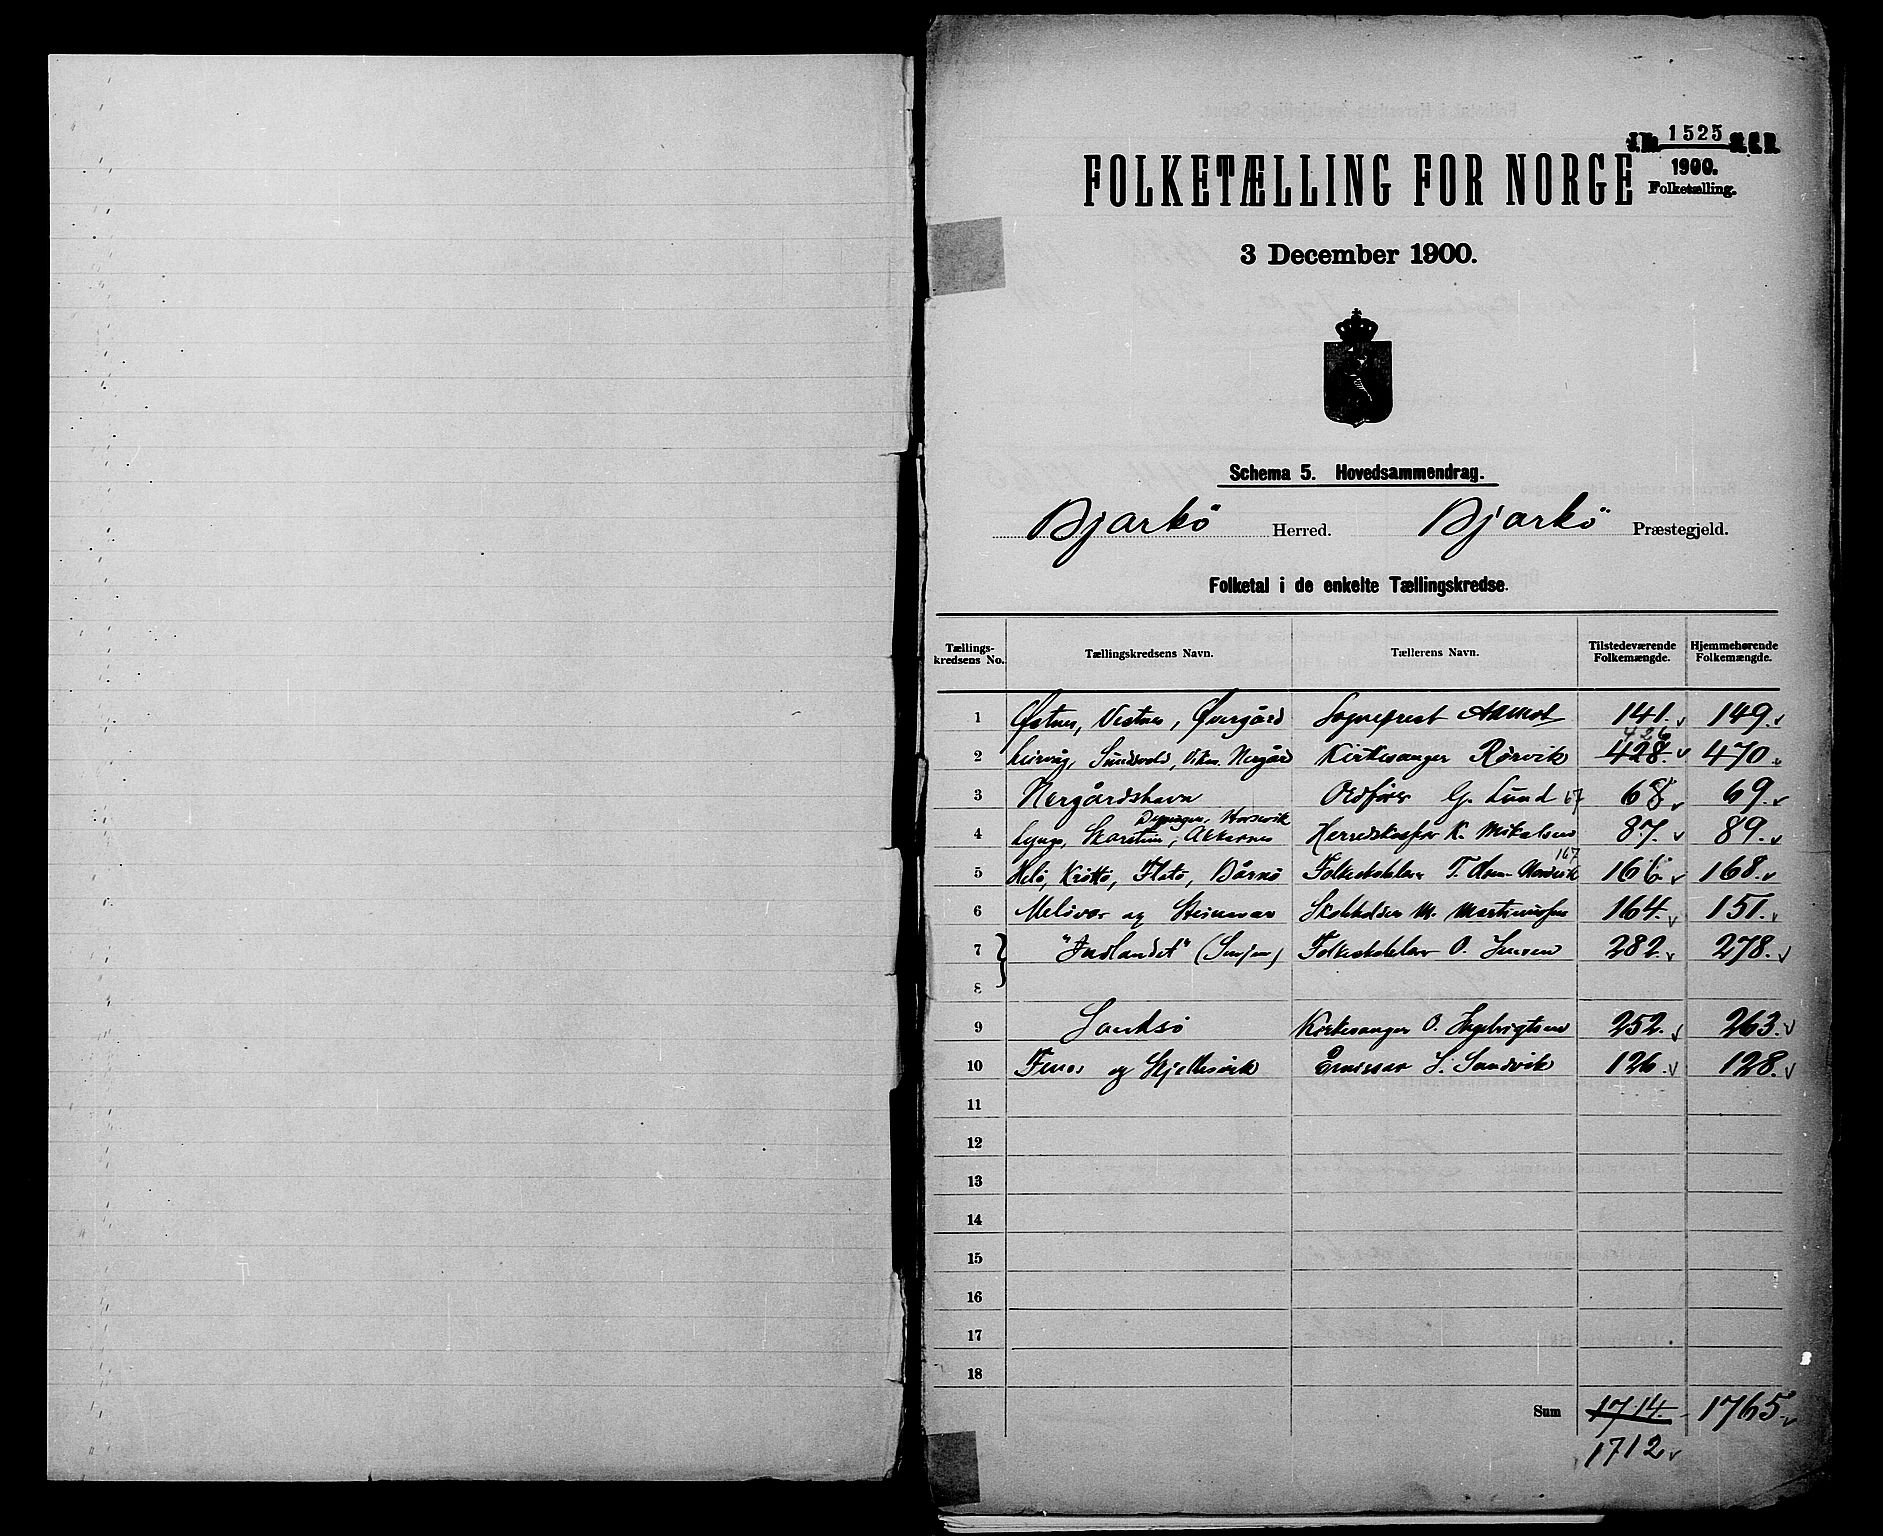 J.No. 1525 St. C. B.
1900.
Folketælling.
FOLKETÆLLING FOR NORGE
3 December 1900.
Schema 5. Hovedsammendrag.
Bjarkö Herred. Bjarkö Præstegjeld.
Folketal i de enkelte Tællingskredse.
Tællingskredsens No. Tællingskredsens Navn. Tællerens Navn. Tilstedeværende Folkemængde. Hjemmehørende Folkemængde.
1 Østnes, Vestnes, Øvergård Sogneprest 141. 149.
426
2 Leirvåg, Sundsvold, Viken. Nergård Kirkesanger Rørvik 428. 470.
3 Nergårdshavn Ordfører G. Lund 67 68 69.
Dyping, Horsevik
4 Lyngs, Skarstein, Akkarnes K. Mikalsen 87. 89.
167
5 Helö, Kröttö, Flatö, Bårnö Folkeskolelærer T. Nordvik 166. 168.
6 Melsvær og Steinavær Skoleholder M. Martinussen 164. 151.
7 "Indlandet" (Senjen) Folkeskolelærer O. Jensen 282. 278.
8
9 Sandsö Kirkesanger O. Ingebrigtsen 252. 263.
10 Fenes og Skjellesvik Emissær S. Sandvik 126. 128.
11
12
13
14
15
16
17
18
Sum 1714. 1765.
1712